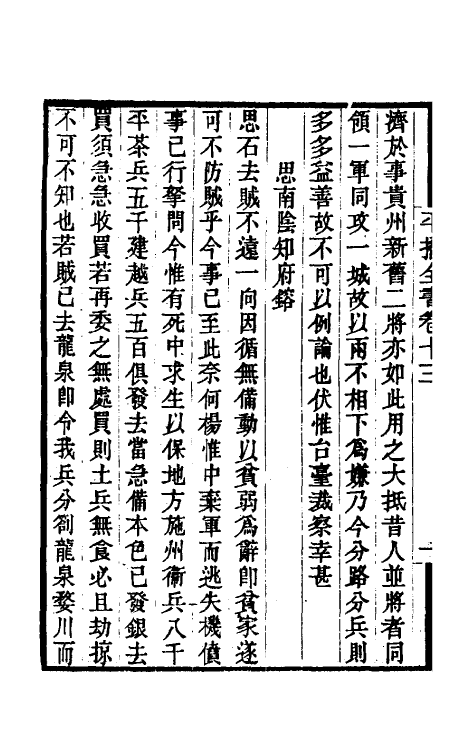 平播全書卷十三
一
濟於事貴州新舊二將亦如此用之大抵昔人並將者同
領一軍同攻一城故以兩不相下爲嫌乃今分路分兵則
多多益善故不可以例論也伏惟台臺裁察幸甚
思南陰知府鎔
思石去賊不遠一向因循無備動以貧弱爲辭卽貧家遂
可不防賊乎今事已至此奈何楊惟中棄軍而逃失機僨
事已行拏問今惟有死中求生以保地方施州衛兵八千
平茶兵五千建越兵五百俱發去當急備本色已發銀去
買須急急收買若再委之無處買則土兵無食必且劫掠
不可不知也若賊已去龍泉卽令我兵分劄龍泉婺川而